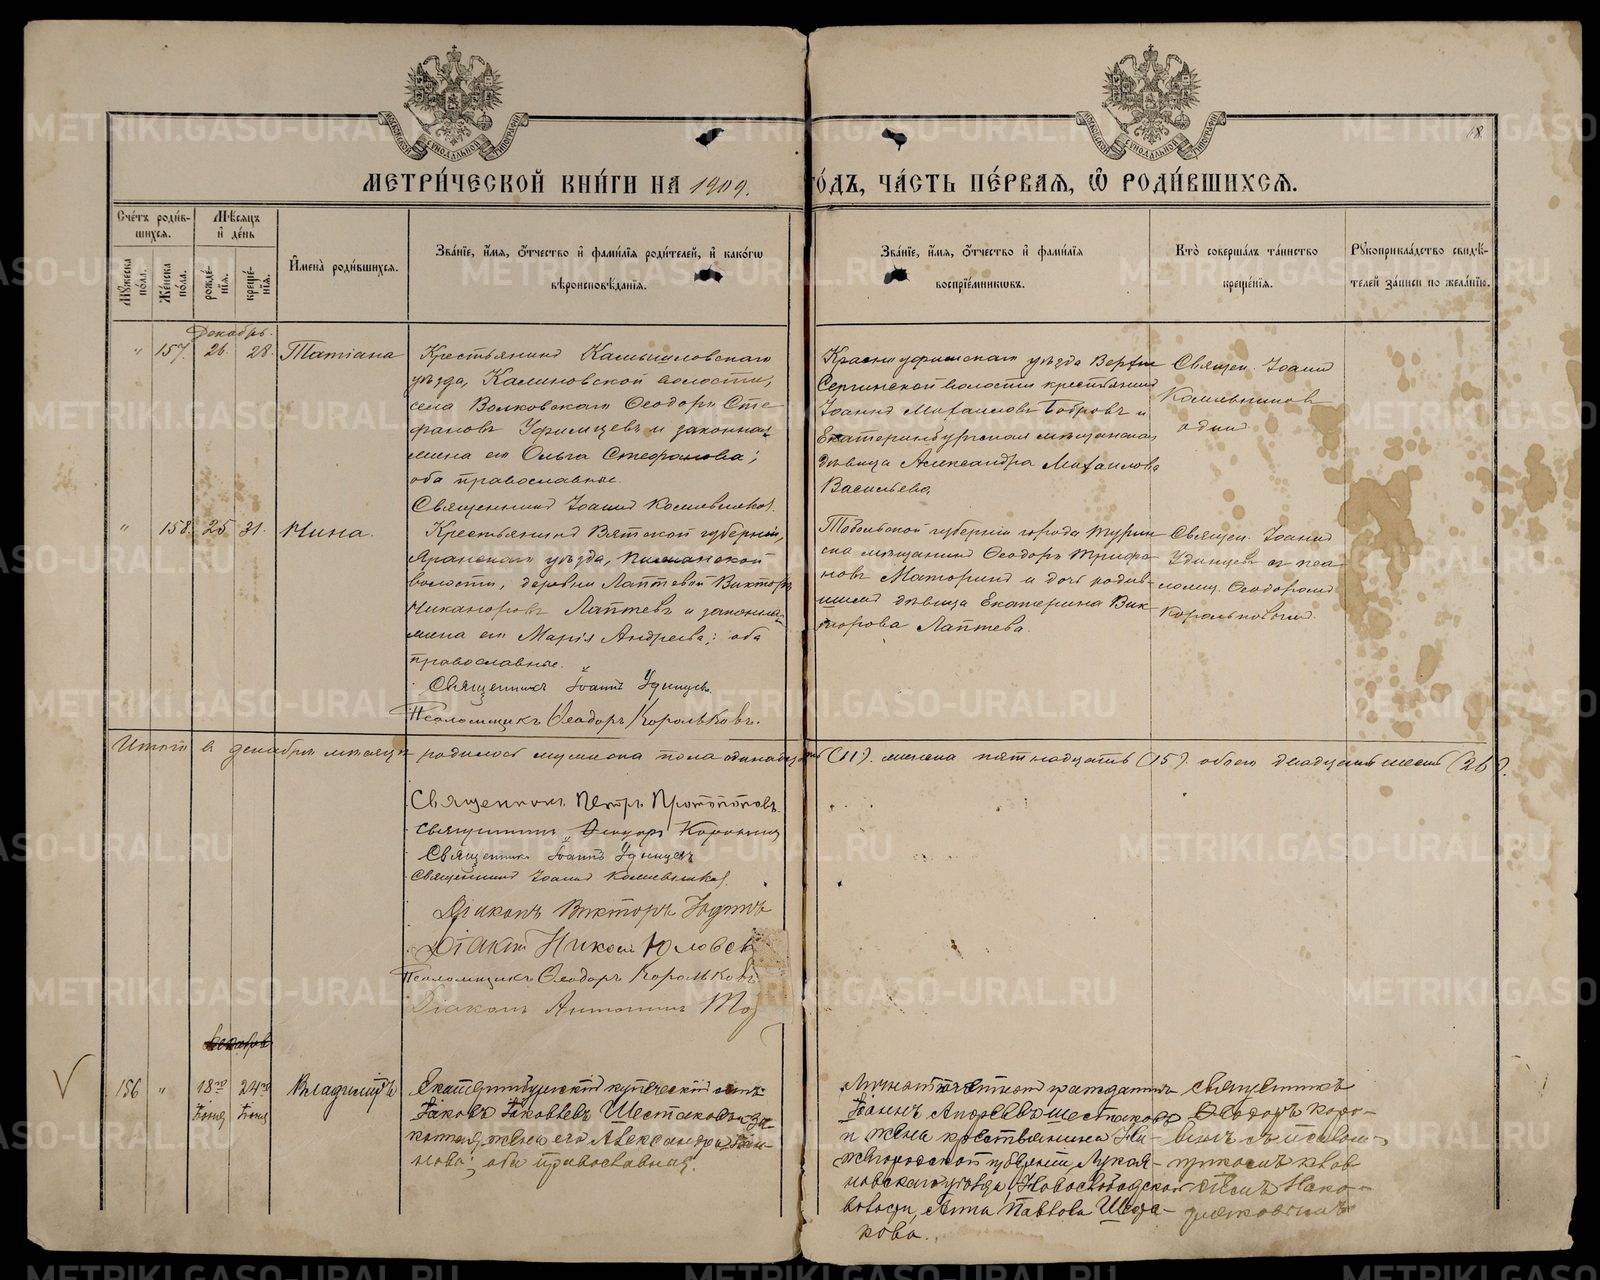 МЕТРИ́ЧЕСКОЙ КНИ́ГИ НА 1909. ГО́ДЪ, ЧА́СТЬ ПЕ́РВАѦ, Ѡ҆ РОДИ́ВШИХСѦ.
18.
Сче́тъ роди́в-
шихсѧ.
Мѣ́сѧцъ
и҆ де́нь
Мꙋ́жеска по́ла.
Же́нска по́ла.
рожде́-
нїѧ.
креще́-
нїѧ.
И҆мена̀ роди́вшихсѧ.
Зва́нїе, и҆́мѧ, ѻ҆́тчество и҆ фами́лїѧ роди́телей, и҆ како́гѡ
вѣроисповѣ́данїѧ.
Зва́нїе, и҆́мѧ, ѻ҆́тчество и҆ фами́лїѧ
воспрїе́мникѡвъ.
Кто̀ соверша́лъ та́инство
креще́нїѧ.
Рꙋкоприкла́дство свидѣ́-
телей за́писи по жела́нїю.
Декабрь.
" 157. 26 28. Татіана
Крестьянинъ Камышловскаго
уѣзда, Калиновской волости,
села Волковскаго Ѳеодоръ Сте-
фановъ Уфимцевъ и законная
жена его Ольга Стефанова;
оба православные.
Священникъ Іоаннъ
Красноуфимскаго уѣзда Верхне
Сергинской волости крестьянинъ
Іоаннъ Михаиловъ Бобровъ и
Екатеринбургская мѣщанская
дѣвица Александра Михаилова
Васильева.
Священ. Іоаннъ
одинъ
" 158. 25 31. Нина.
Крестьянинъ Вятской губерніи,
Яранскаго уѣзда,
волости, деревни Лаптевой Викторъ
Никаноровъ Лаптевъ и законная
жена его Марія Андреева; оба
православные.
Священникъ Іоаннъ Удинцевъ
Псаломщикъ Ѳеодоръ Корольковъ.
Тобольской губерніи города Турин-
ска мѣщанинъ Ѳеодоръ Трифо-
новъ Маторинъ и дочь родив-
шихъ дѣвица Екатерина Вик-
торова Лаптева.
Священ. Іоаннъ
Удинцев съ пса-
ломщ. Ѳеодоромъ
Корольковымъ.
Итого въ декабрѣ мѣсяцѣ родилось мужеска пола одинадцать (11). женска пятнадцать (15). обоего двадцать шесть (26).
Священникъ Петръ Протопоповъ.
Священникъ Ѳеодоръ Коровинъ
Священникъ Іоаннъ Удинцевъ
Священникъ Іоаннъ
Діаконъ Викторъ
Діаконъ Никол
Псаломщикъ Ѳеодоръ Корольковъ
Діаконъ Антонинъ
156 " 18го 24го Владиміръ
Іюня Іюня
Екатеринбургскій купеческій сынъ
Іаковъ Іаковлевъ Шестаковъ и за-
конная жена его Александра Іоан-
нова; оба православные.
Личный почетный гражданинъ
Іоаннъ Андреевъ Шестаковъ
и жена крестьянина Ни-
жегородской губерніи, Лукоя-
новскаго уѣзда, Новослободской
волости, Анна Павлова
кова.
Священникъ
Ѳеодоръ Коро-
винъ съ псалом-
щикомъ
METRIKI.GASO-URAL.RU